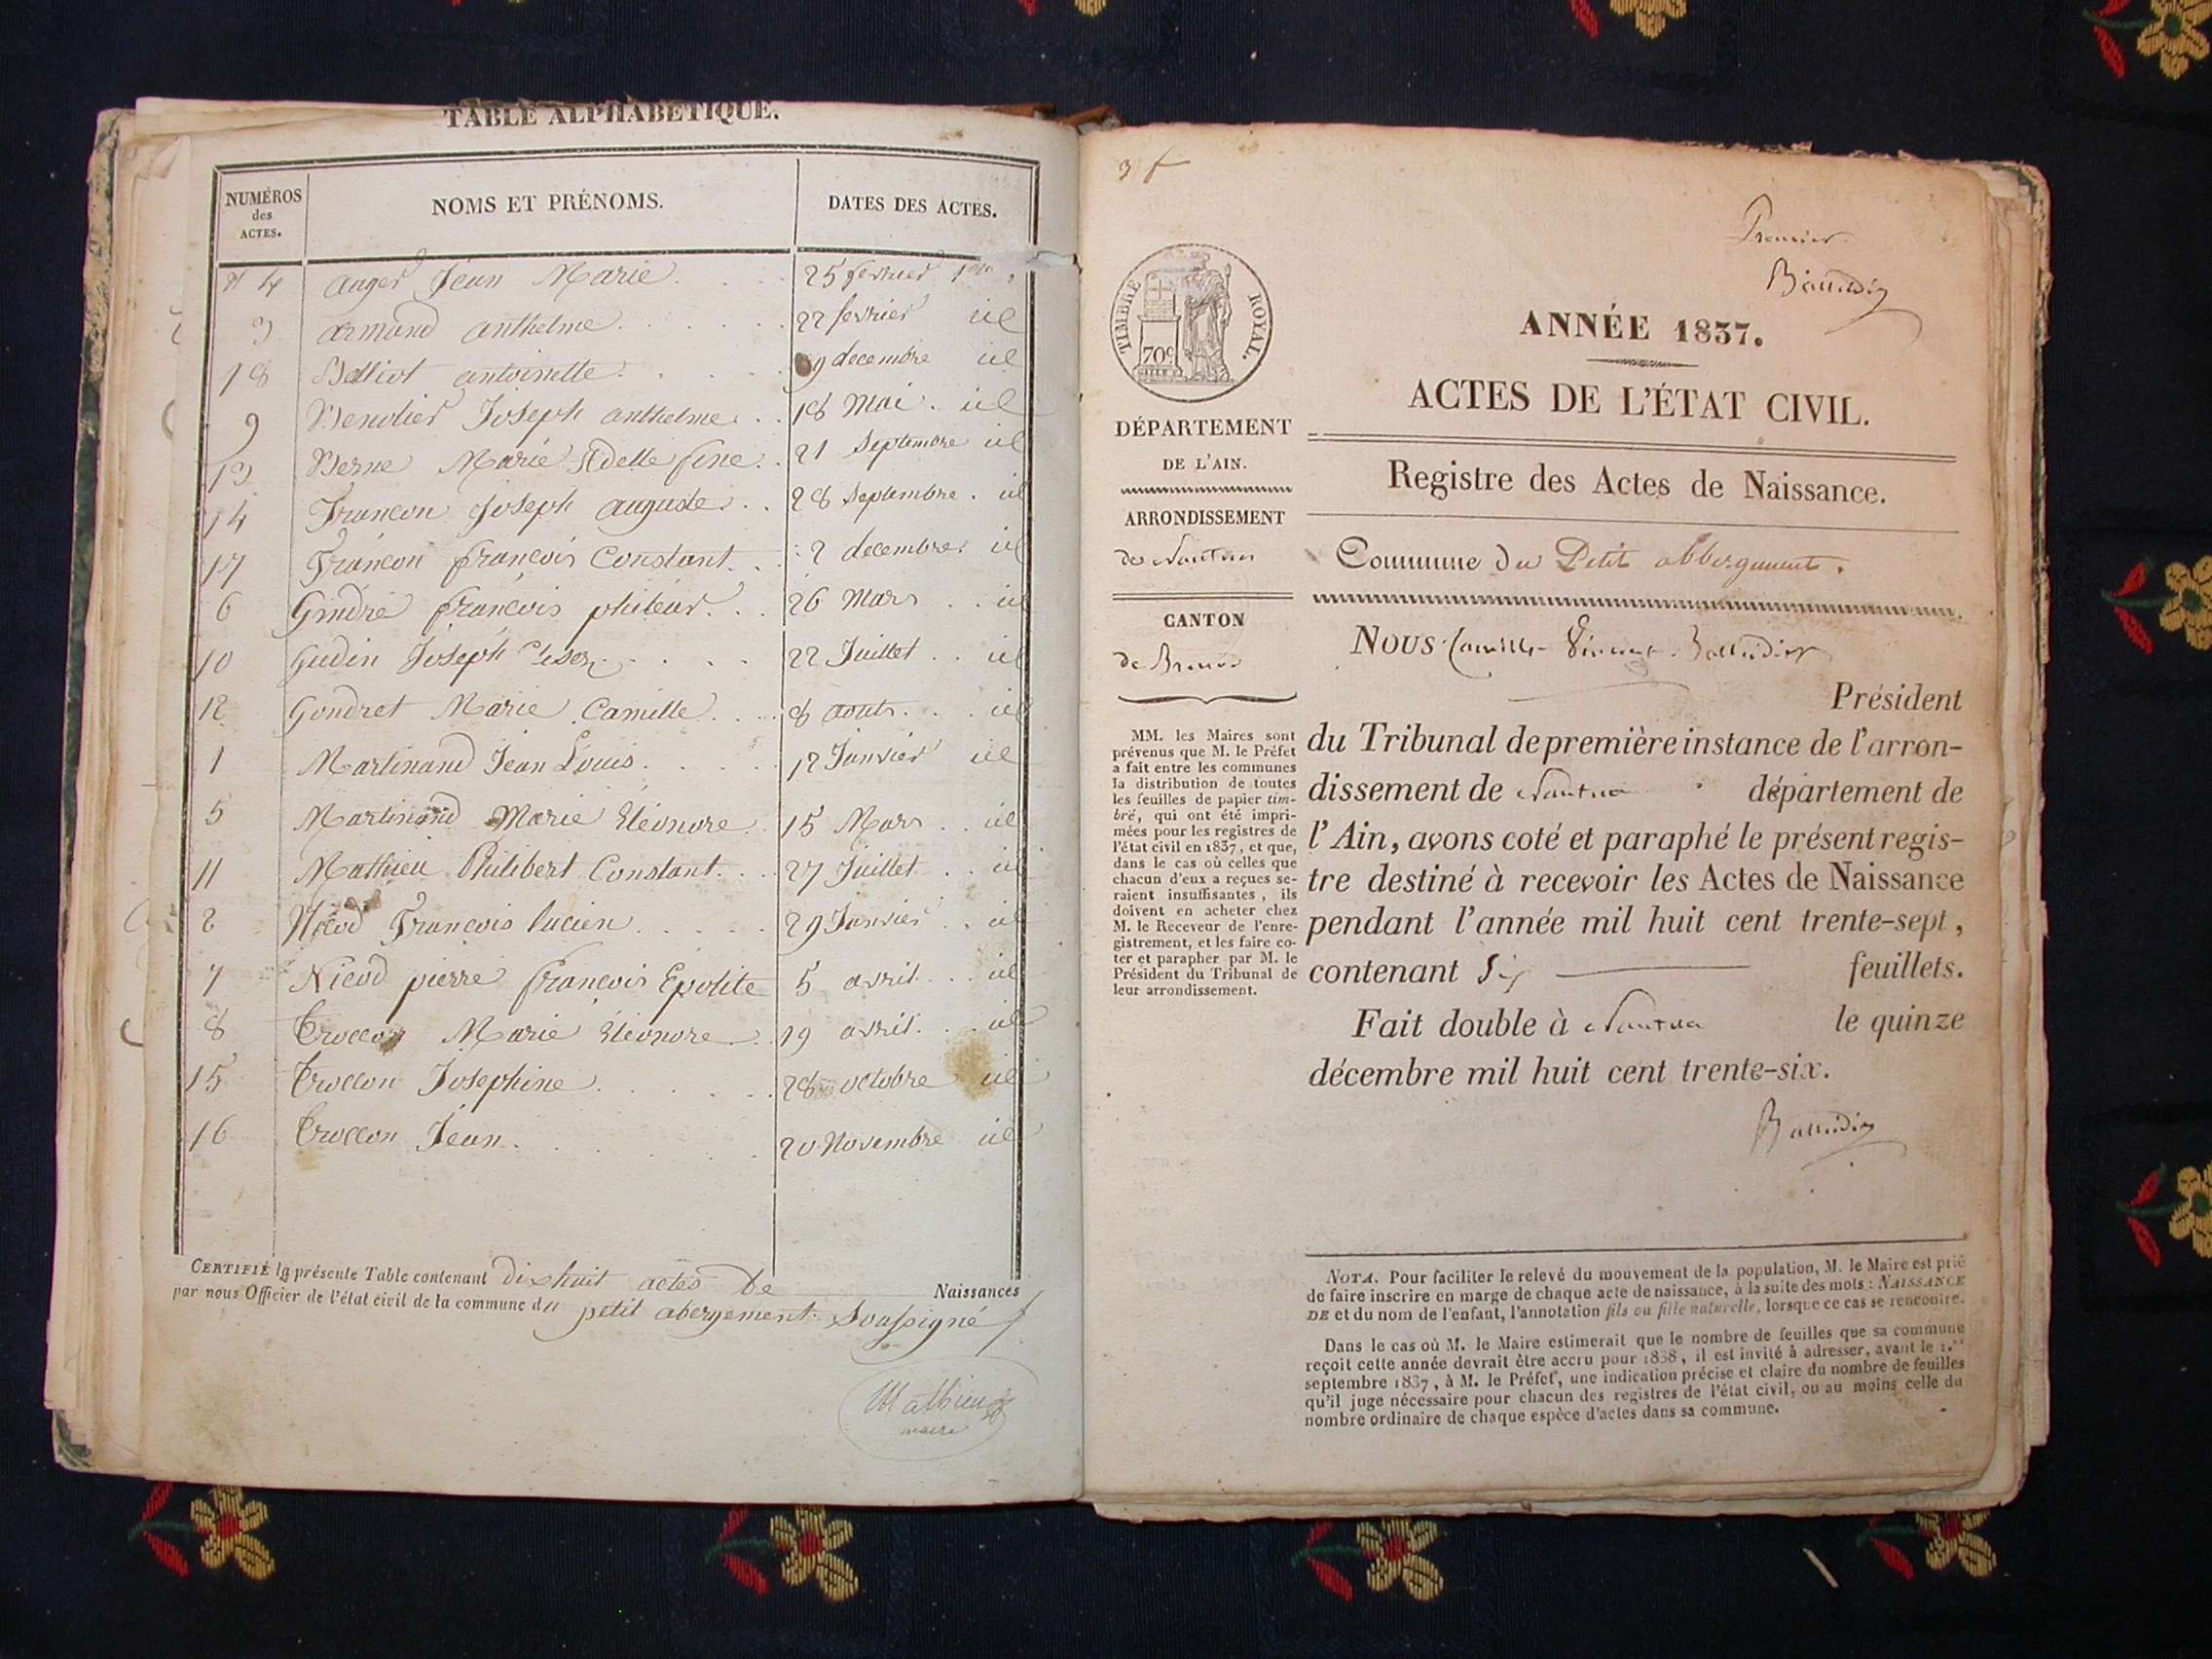 TABLE ALPHABÉTIQUE.
NUMÉROS des ACTES. NOMS ET PRÉNOMS. DATES DES ACTES.
4 auger Jean Marie 25 fevrier
3 armand anthelme 22 fevrier id
18 Balliot antoinette 9 decembre id
9 Joseph anthelme 18 Mai id
13 Berne Marie 21 Septembre id
14 Francon Joseph auguste 28 Septembre id
17 Francon françois Constant 2 decembre id
6 Gindre françois 26 Mars id
10 Gudin Joseph 22 Juillet id
12 Gondret Marie Camille 8 id
1 Martinand Jean Louis 12 Janvier id
5 Martinand Marie Eléonore 15 Mars id
11 Mathieu Philibert Constant 27 Juillet id
2 Nicod Francois lucien 29 Janvier id
7 Nicod pierre françois Epolite 5 avril id
8 Troccon Marie Eléonore 19 avril id
15 Troccon Josephine 28 octobre id
16 Troccon Jean 20 Novembre id
CERTIFIÉ la présente Table contenant dix huit actes de Naissances
par nous Officier de l'état civil de la commune du petit abergement Soussigné
Mathieu
maire
3 f
Premier
TIMBRE ROYAL.
70c
ANNÉE 1837.
ACTES DE L'ÉTAT CIVIL.
DÉPARTEMENT
DE L'AIN.
ARRONDISSEMENT
de Nantua
CANTON
de
MM. les Maires sont
prévenus que M. le Préfet
a fait entre les communes
la distribution de toutes
les feuilles de papier tim-
bré, qui ont été impri-
mées pour les registres de
l'état civil en 1837, et que,
dans le cas où celles que
chacun d'eux a reçues se-
raient insuffisantes, ils
doivent en acheter chez
M. le Receveur de l'enre-
gistrement, et les faire co-
ter et parapher par M. le
Président du Tribunal de
leur arrondissement.
Registre des Actes de Naissance.
Commune du Petit abbergement.
NOUS Vincent
Président
du Tribunal de première instance de l'arron-
dissement de Nantua département de
l'Ain, avons coté et paraphé le présent regis-
tre destiné à recevoir les Actes de Naissance
pendant l'année mil huit cent trente-sept,
contenant Six feuillets.
Fait double à Nantua le quinze
décembre mil huit cent trente-six.
NOTA. Pour faciliter le relevé du mouvement de la population, M. le Maire est prié
de faire inscrire en marge de chaque acte de naissance, à la suite des mots : NAISSANCE
DE et du nom de l'enfant, l'annotation fils ou fille naturelle, lorsque ce cas se rencontre.
Dans le cas où M. le Maire estimerait que le nombre de feuilles que sa commune
reçoit cette année devrait être accru pour 1838, il est invité à adresser, avant le 1.er
septembre 1837, à M. le Préfet, une indication précise et claire du nombre de feuilles
qu'il juge nécessaire pour chacun des registres de l'état civil, ou au moins celle du
nombre ordinaire de chaque espèce d'actes dans sa commune.